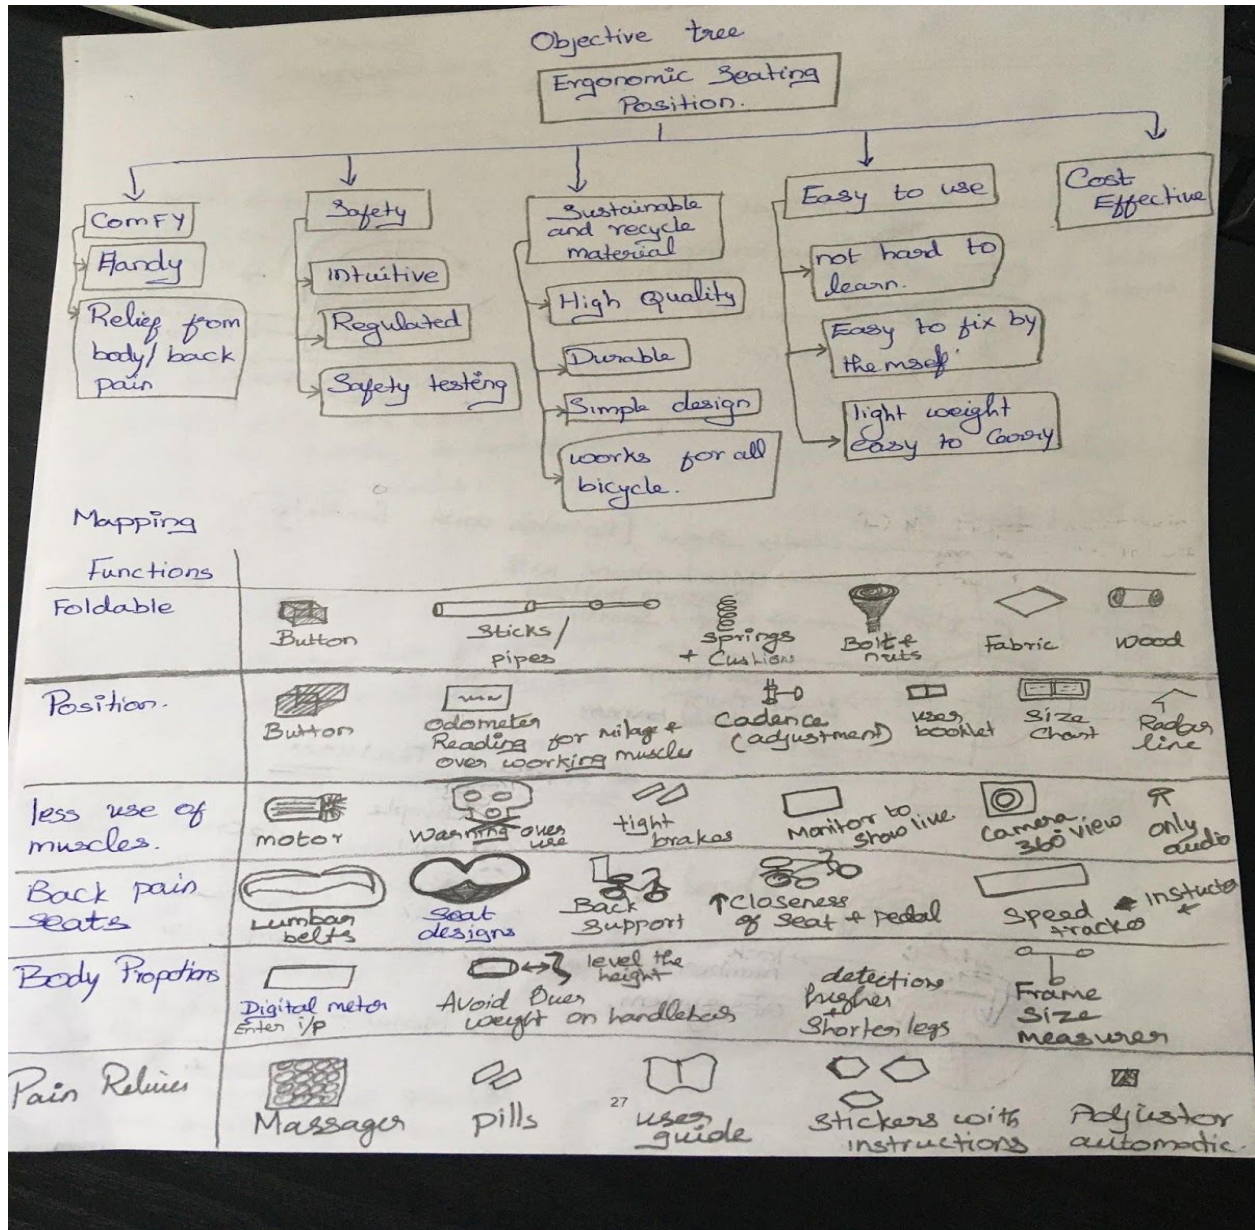 Objective tree
Ergonomic Seating
Position.
Comfy
Handy
Relief from
body/back
pain
Safety
Intuitive
Regulated
Safety testing
Sustainable
and recycle
material
High Quality
Durable
Simple design
works for all
bicycle.
Easy to use
not hard to
learn.
Easy to fix by
themself.
light weight
easy to carry
Cost
Effective
Mapping
Functions
Foldable
Button
Sticks/
pipes
Springs
+ Cushions
Bolt +
nuts
Fabric
Wood
Position.
Button
Odometer
Reading for milage +
over working muscle
Cadence
(adjustment)
user
booklet
Size
Chart
Radar
line
less use of
muscles.
motor
Warning over
use
tight
brakes
Monitor to
show live
Camera
360 view
only
audio
Back pain
seats
Lumbar
belts
Seat
designs
Back
Support
↑Closeness
of Seat + pedal
Speed
tracker
Instuctor
Body Propotions
Digital meter
Enter i/p
level the
height
Avoid Over
weight on handlebar
detection
higher
Shorter legs
Frame
Size
measurer
Pain
Massager
pills
27
user
guide
Stickers with
instructions
Adjustor
automatic.